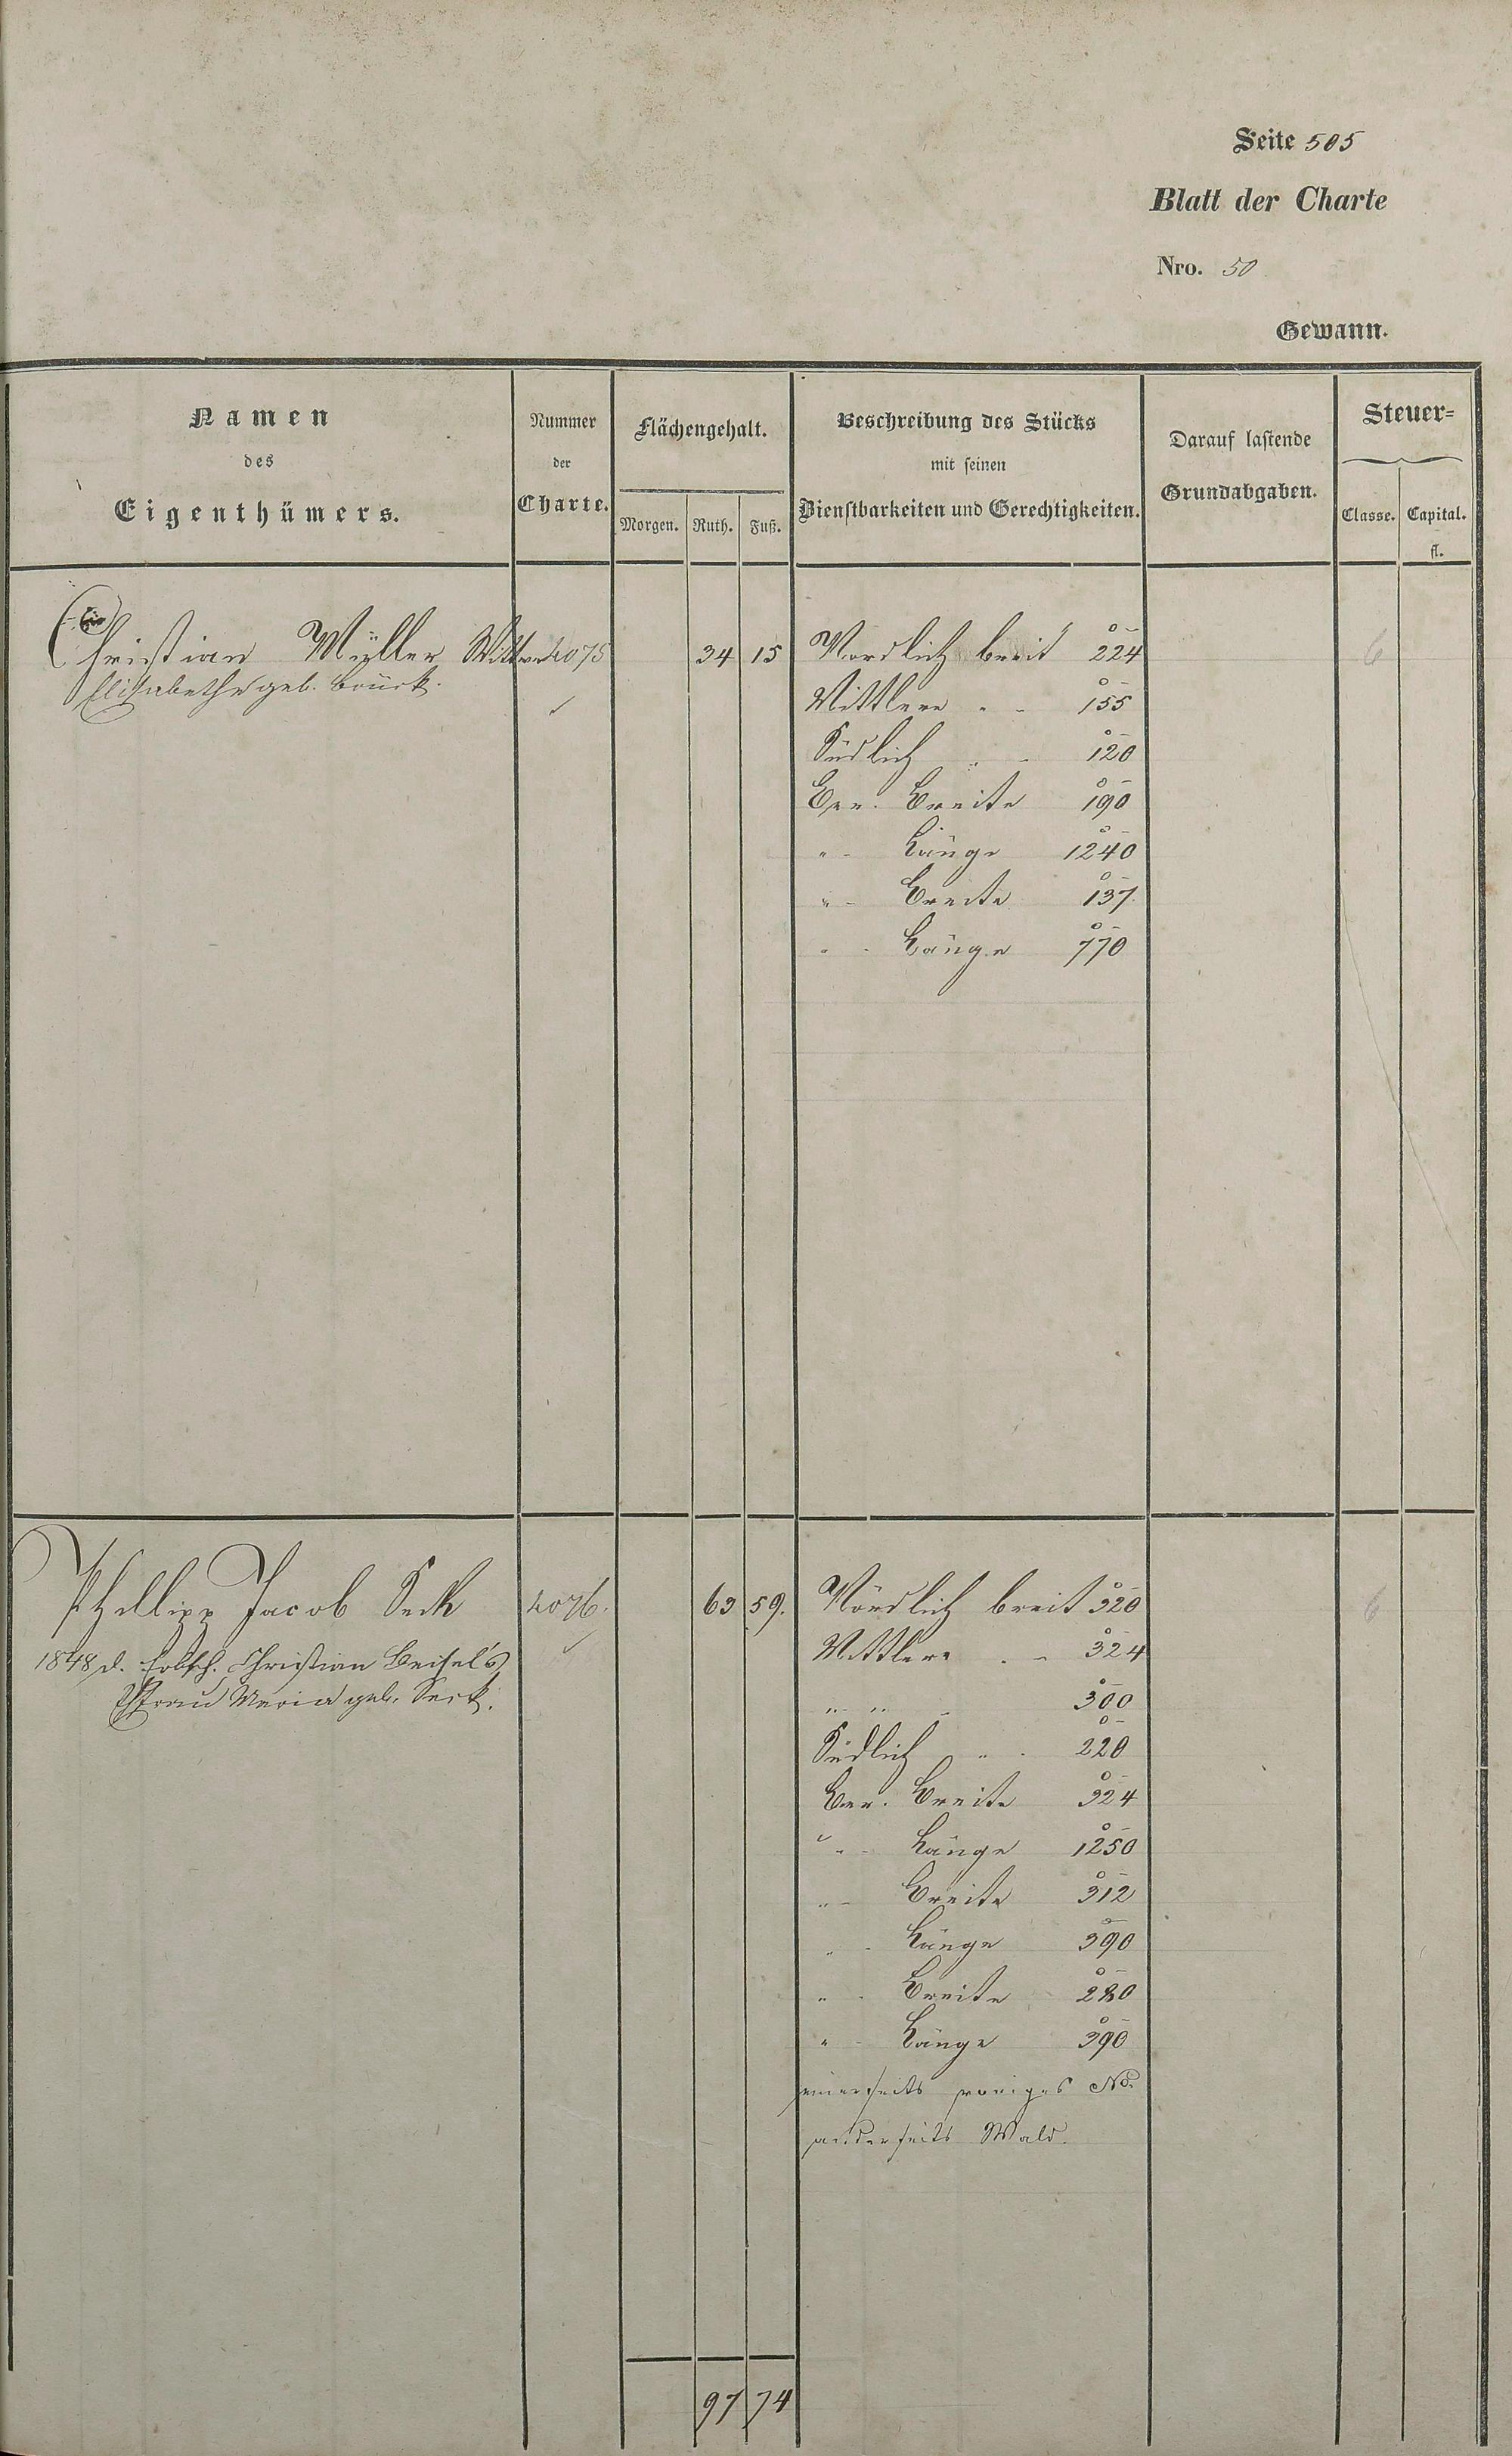 Seite 505
Blatt der Charte
Nro. 50
Gewann.
Namen
des
Eigenthümers.
Nummer
der
Charte.
Flächengehalt.
Morgen. Ruth. Fuß.
Beschreibung des Stücks
mit seinen
Dienstbarkeiten und Gerechtigkeiten.
Darauf lastende
Grundabgaben.
Steuer=
Classe. Capital.
fl.
Christian Müller Wittwe 4075 34 15 Nördlich breit 224 6
Elisabethe geb. Brück. Mittlere " - 155
Südlich " - 120
Ber. Breite 190
" - Länge 1240
" - Breite 137
" - Länge 770
Philipp Jacob Seck 4076. 63 59. Nördlich breit 320 6
1848 d. Erbsch. Christian Beisel's Mittlere " - 324
Ehfrau Maria geb. Seck. " " - 300
Südlich " - 220
Ber. Breite 324
" - Länge 1250
" - Breite 312
" - Länge 390
" - Breite 280
" - Länge 390
einerseits voriges No.
anderseits Wald.
97 74